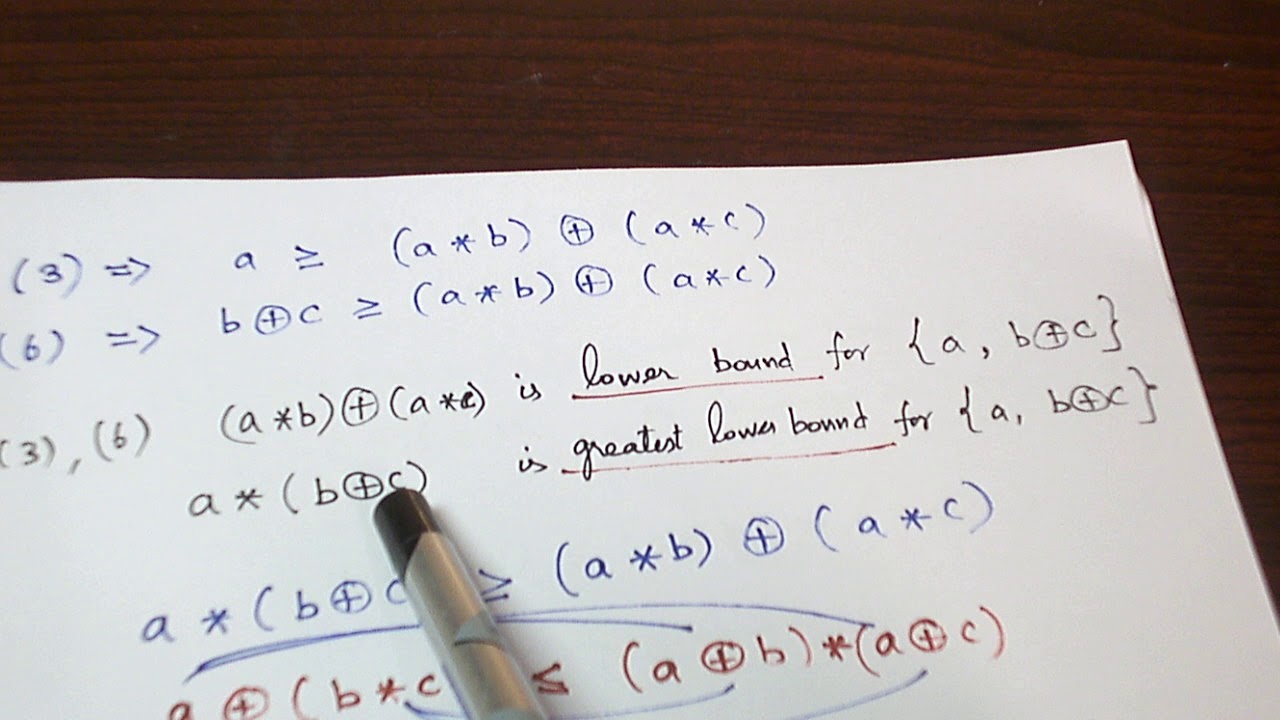 (3) => a ≥ (a * b) ⊕ (a * c)
(6) => b ⊕ c ≥ (a * b) ⊕ (a * c)
(3), (6) (a * b) ⊕ (a * c) is lower bound for {a, b ⊕ c}
a * (b ⊕ c) is greatest lower bound for {a, b ⊕ c}
a * (b ⊕ c ≥ (a * b) ⊕ (a * c)
a ⊕ (b * c ≤ (a ⊕ b) * (a ⊕ c)